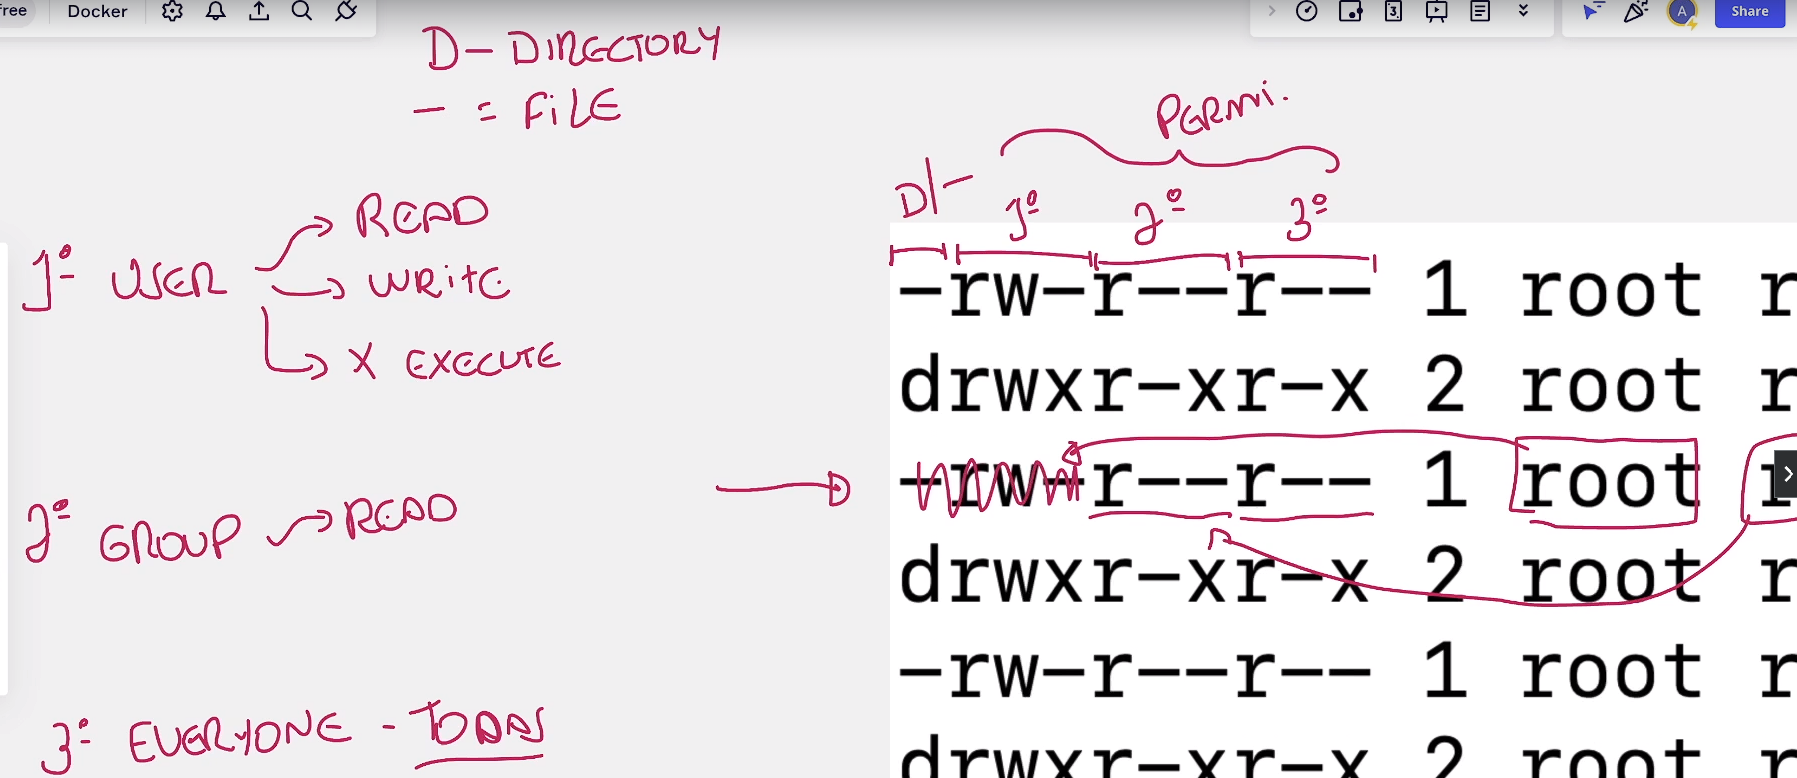 ree Docker Share
D - DIRECTORY
- = FILE
PERMI.
D/-
1º 2º 3º
1º USER
READ
WRITE
X EXECUTE
2º GROUP READ
3º EVERYONE -
-rw-r--r-- 1 root r
drwxr-xr-x 2 root r
r--r-- 1 root
drwxr-xr-x 2 root r
-rw-r--r-- 1 root r
drwxr-xr-x 2 root r